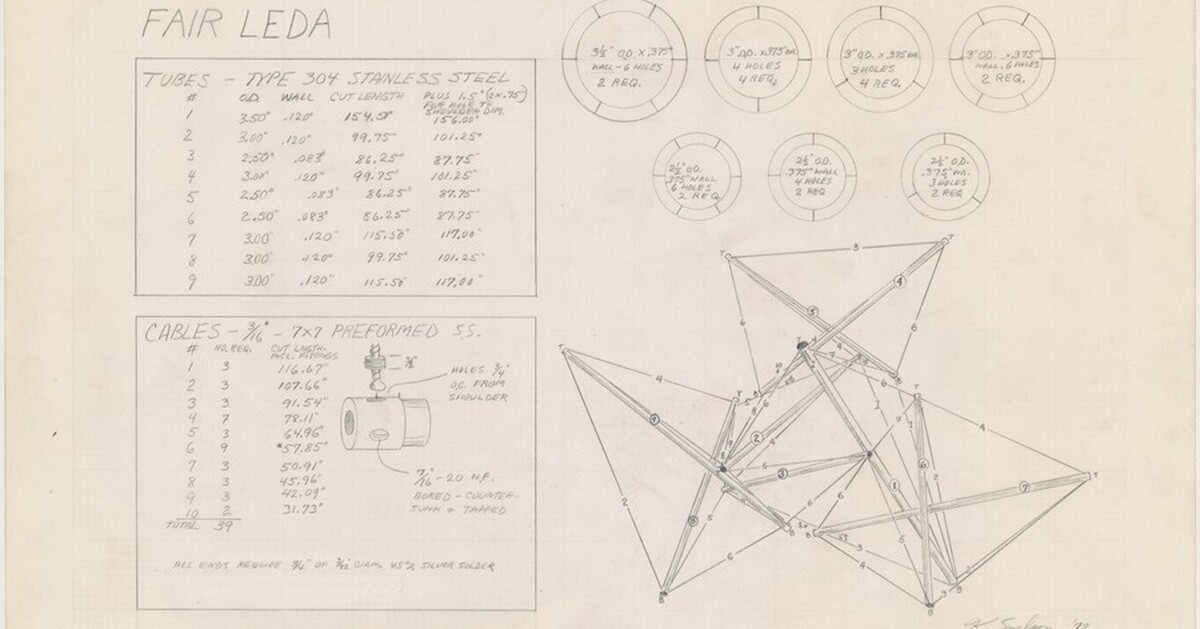 FAIR LEDA
TUBES - TYPE 304 STAINLESS STEEL
# O.D. WALL CUT LENGTH PLUS 1.5" (2X.75)
FOR HOLE TO
SHOULDER DIM.
1 3.50" .120" 154.5" 156.00"
2 3.00" .120" 99.75" 101.25"
3 2.50" .083" 86.25" 87.75"
4 3.00" .120" 99.75" 101.25"
5 2.50" .083" 86.25" 87.75"
6 2.50" .083" 86.25" 87.75"
7 3.00" .120" 115.50" 117.00"
8 3.00" .120" 99.75" 101.25"
9 3.00" .120" 115.50" 117.00"
CABLES - 3/16" - 7X7 PREFORMED S.S.
# NO. REQ. CUT LNGTH.
INCL. FITTINGS
1 3 116.67"
2 3 107.66"
3 3 91.54"
4 7 78.11"
5 3 64.96"
6 9 *57.85"
7 3 50.91"
8 3 45.96"
9 3 42.09"
10 2 31.73"
TOTAL 39
HOLES 3/4"
O.C. FROM
SHOULDER
7/16"-20 N.F.
BORED - COUNTER-
SUNK & TAPPED
ALL ENDS REQUIRE 3/4" OF 3/32 DIAM. 45% SILVER SOLDER
3½" O.D. X .375"
WALL - 6 HOLES
2 REQ.
3" O.D. X .375" WA.
4 HOLES
4 REQ.
3" O.D. X .375 WA.
3 HOLES
4 REQ.
3" O.D. X .375"
WALL, 6 HOLES
2 REQ.
2½" O.D.
.375" WALL
6 HOLES
2 REQ.
2½" O.D.
.375" WALL
4 HOLES
2 REQ
2½" O.D.
.375" WA.
3 HOLES
2 REQ.